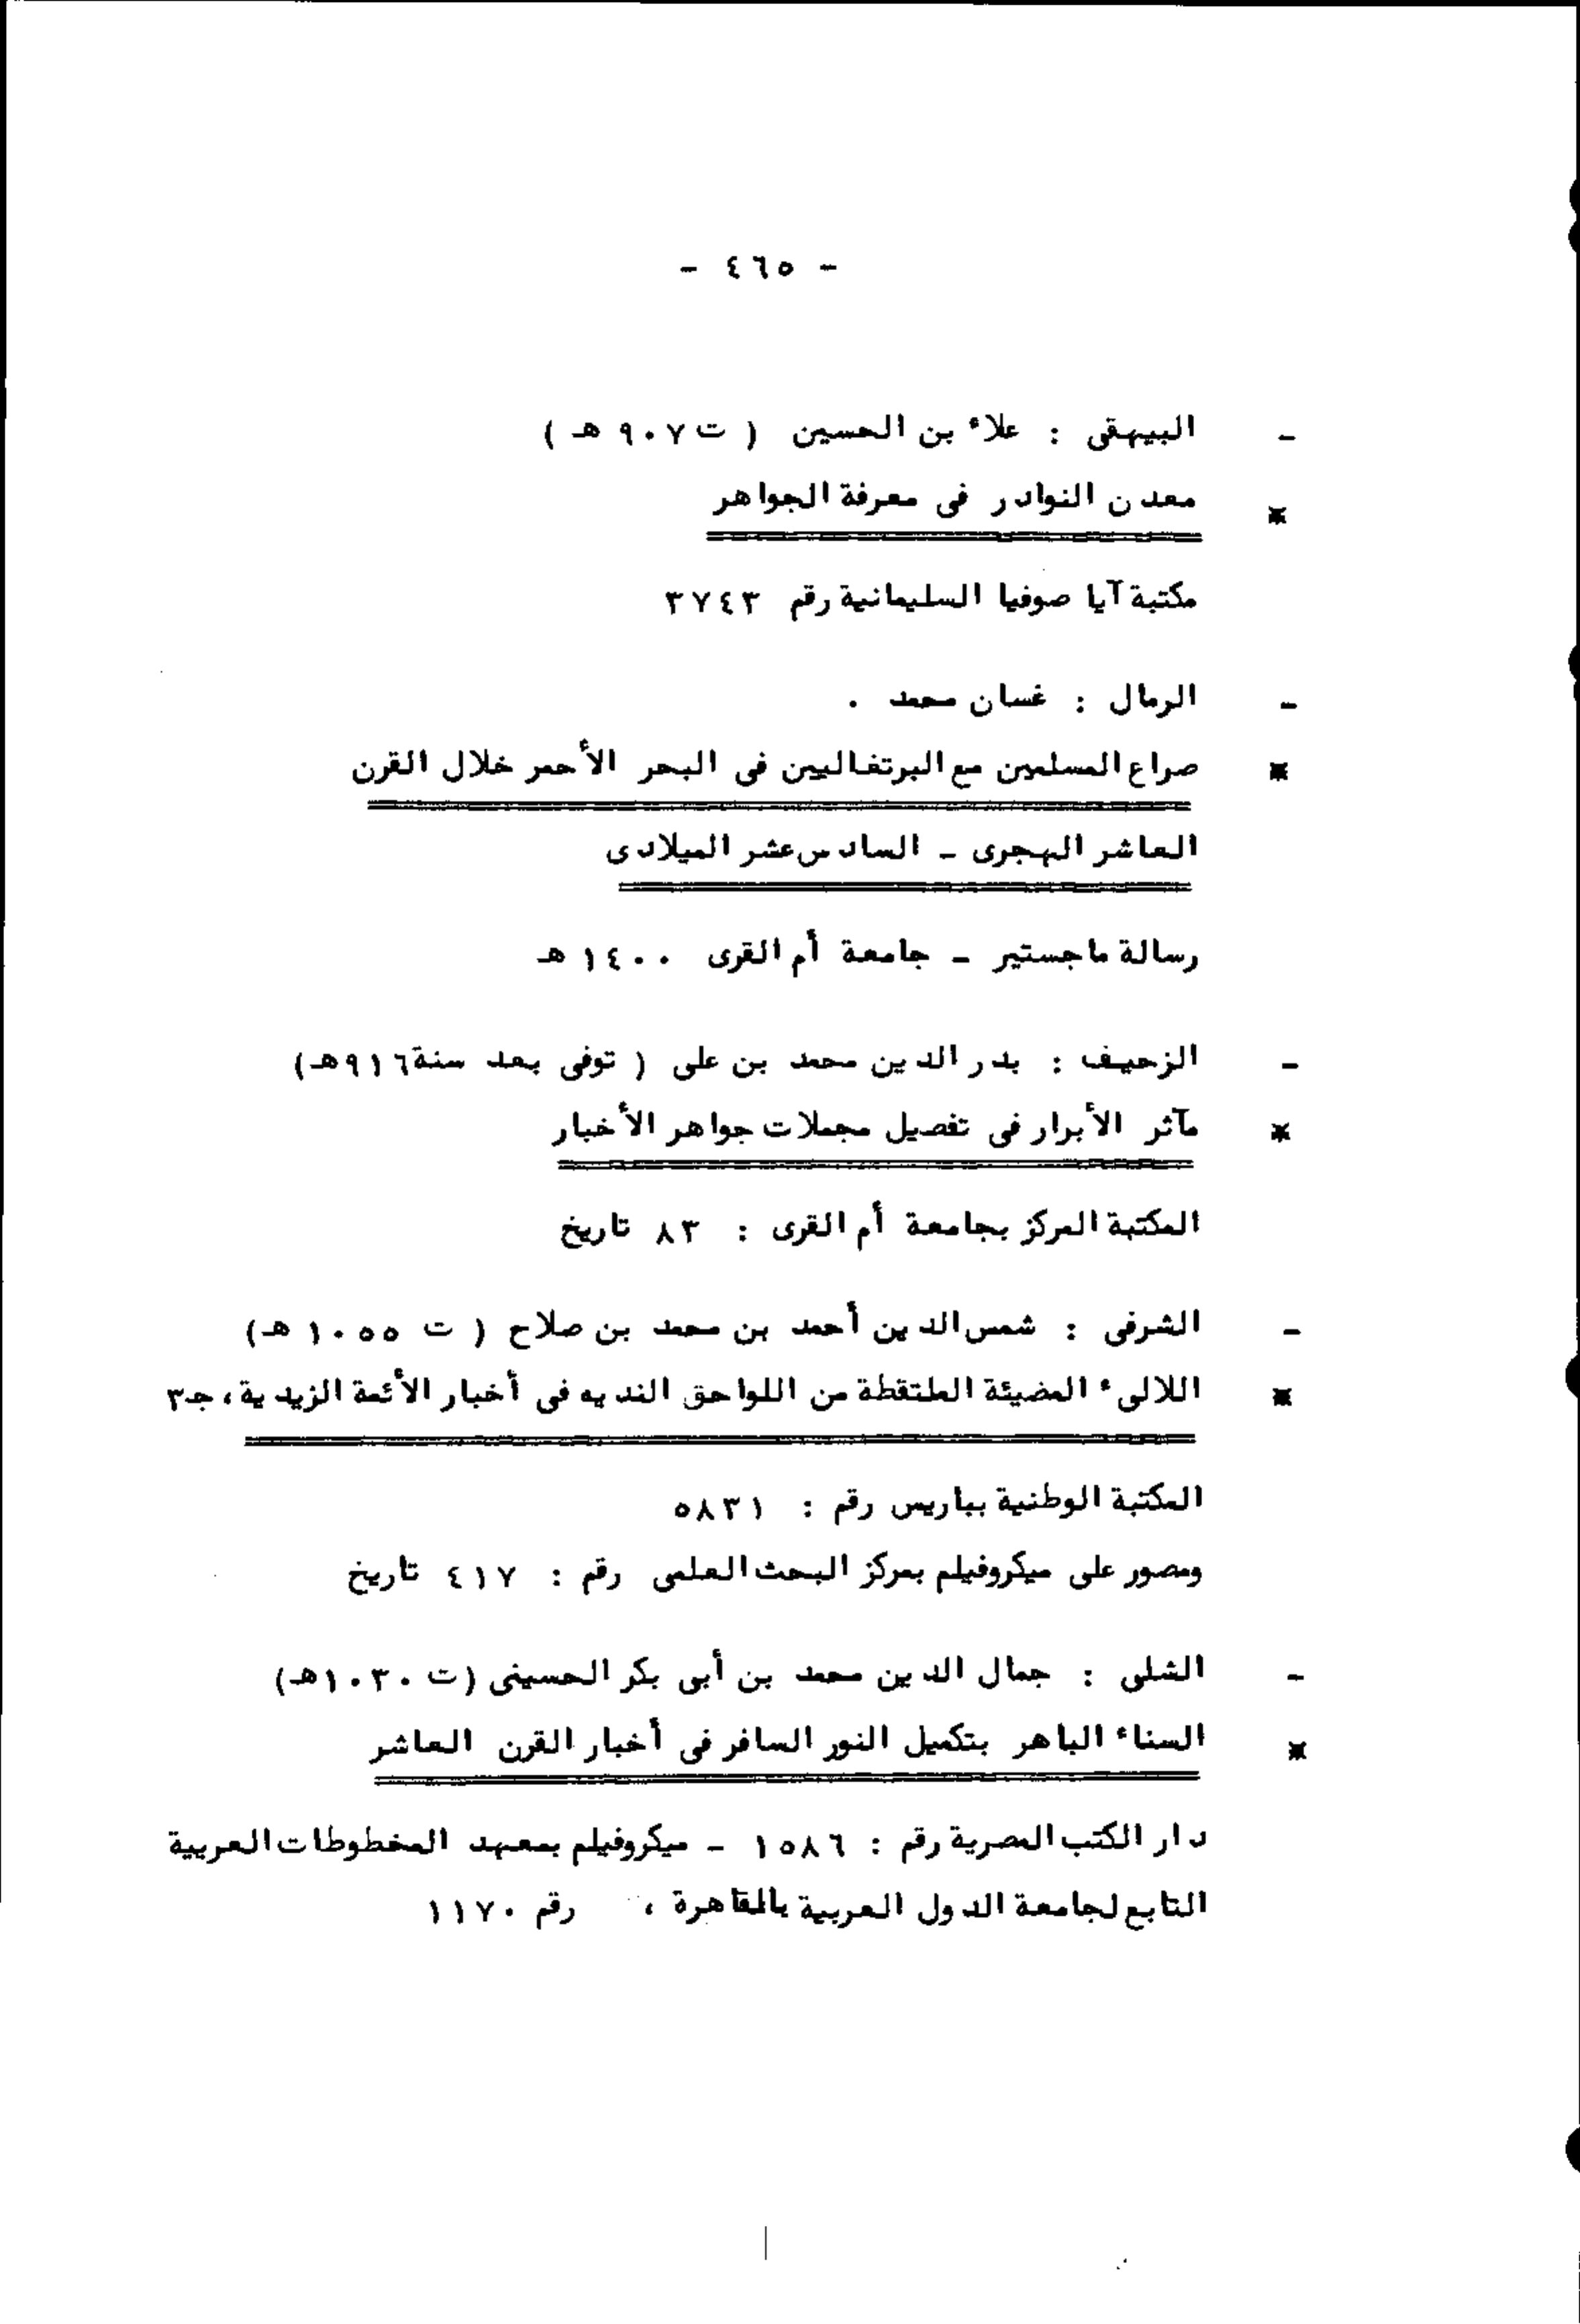 - ٤٦٥ -
- البيهقى : علاء بن الحسين ( ت ٩٠٧ هـ )
* معدن النوادر فى معرفة الجواهر
مكتبة آيا صوفيا السليمانية رقم ٣٧٤٣
- الرمال : غسان محمد .
* صراع المسلمين مع البرتغاليين فى البحر الأحمر خلال القرن
العاشر الهجرى - السادس عشر الميلادى
رسالة ماجستير - جامعة أم القرى ١٤٠٠ هـ
- الزحيف : بدر الدين محمد بن على ( توفى بعد سنة ٩١٦هـ)
* مآثر الأبرار فى تفصيل مجملات جواهر الأخبار
المكتبة المركز بجامعة أم القرى : ٨٣ تاريخ
- الشرفى : شمس الدين أحمد بن محمد بن صلاح ( ت ١٠٥٥ هـ)
* اللالىء المضيئة الملتقطة من اللواحق النديه فى أخبار الأئمة الزيدية، جـ٣
المكتبة الوطنية بباريس رقم : ٥٨٣١
ومصور على ميكروفيلم بمركز البحث العلمى رقم : ٤١٧ تاريخ
- الشلى : جمال الدين محمد بن أبى بكر الحسينى (ت ١٠٣٠هـ)
* السناء الباهر بتكميل النور السافر فى أخبار القرن العاشر
دار الكتب المصرية رقم : ١٥٨٦ - ميكروفيلم بمعهد المخطوطات العربية
التابع لجامعة الدول العربية بالقاهرة ، رقم ١١٧٠